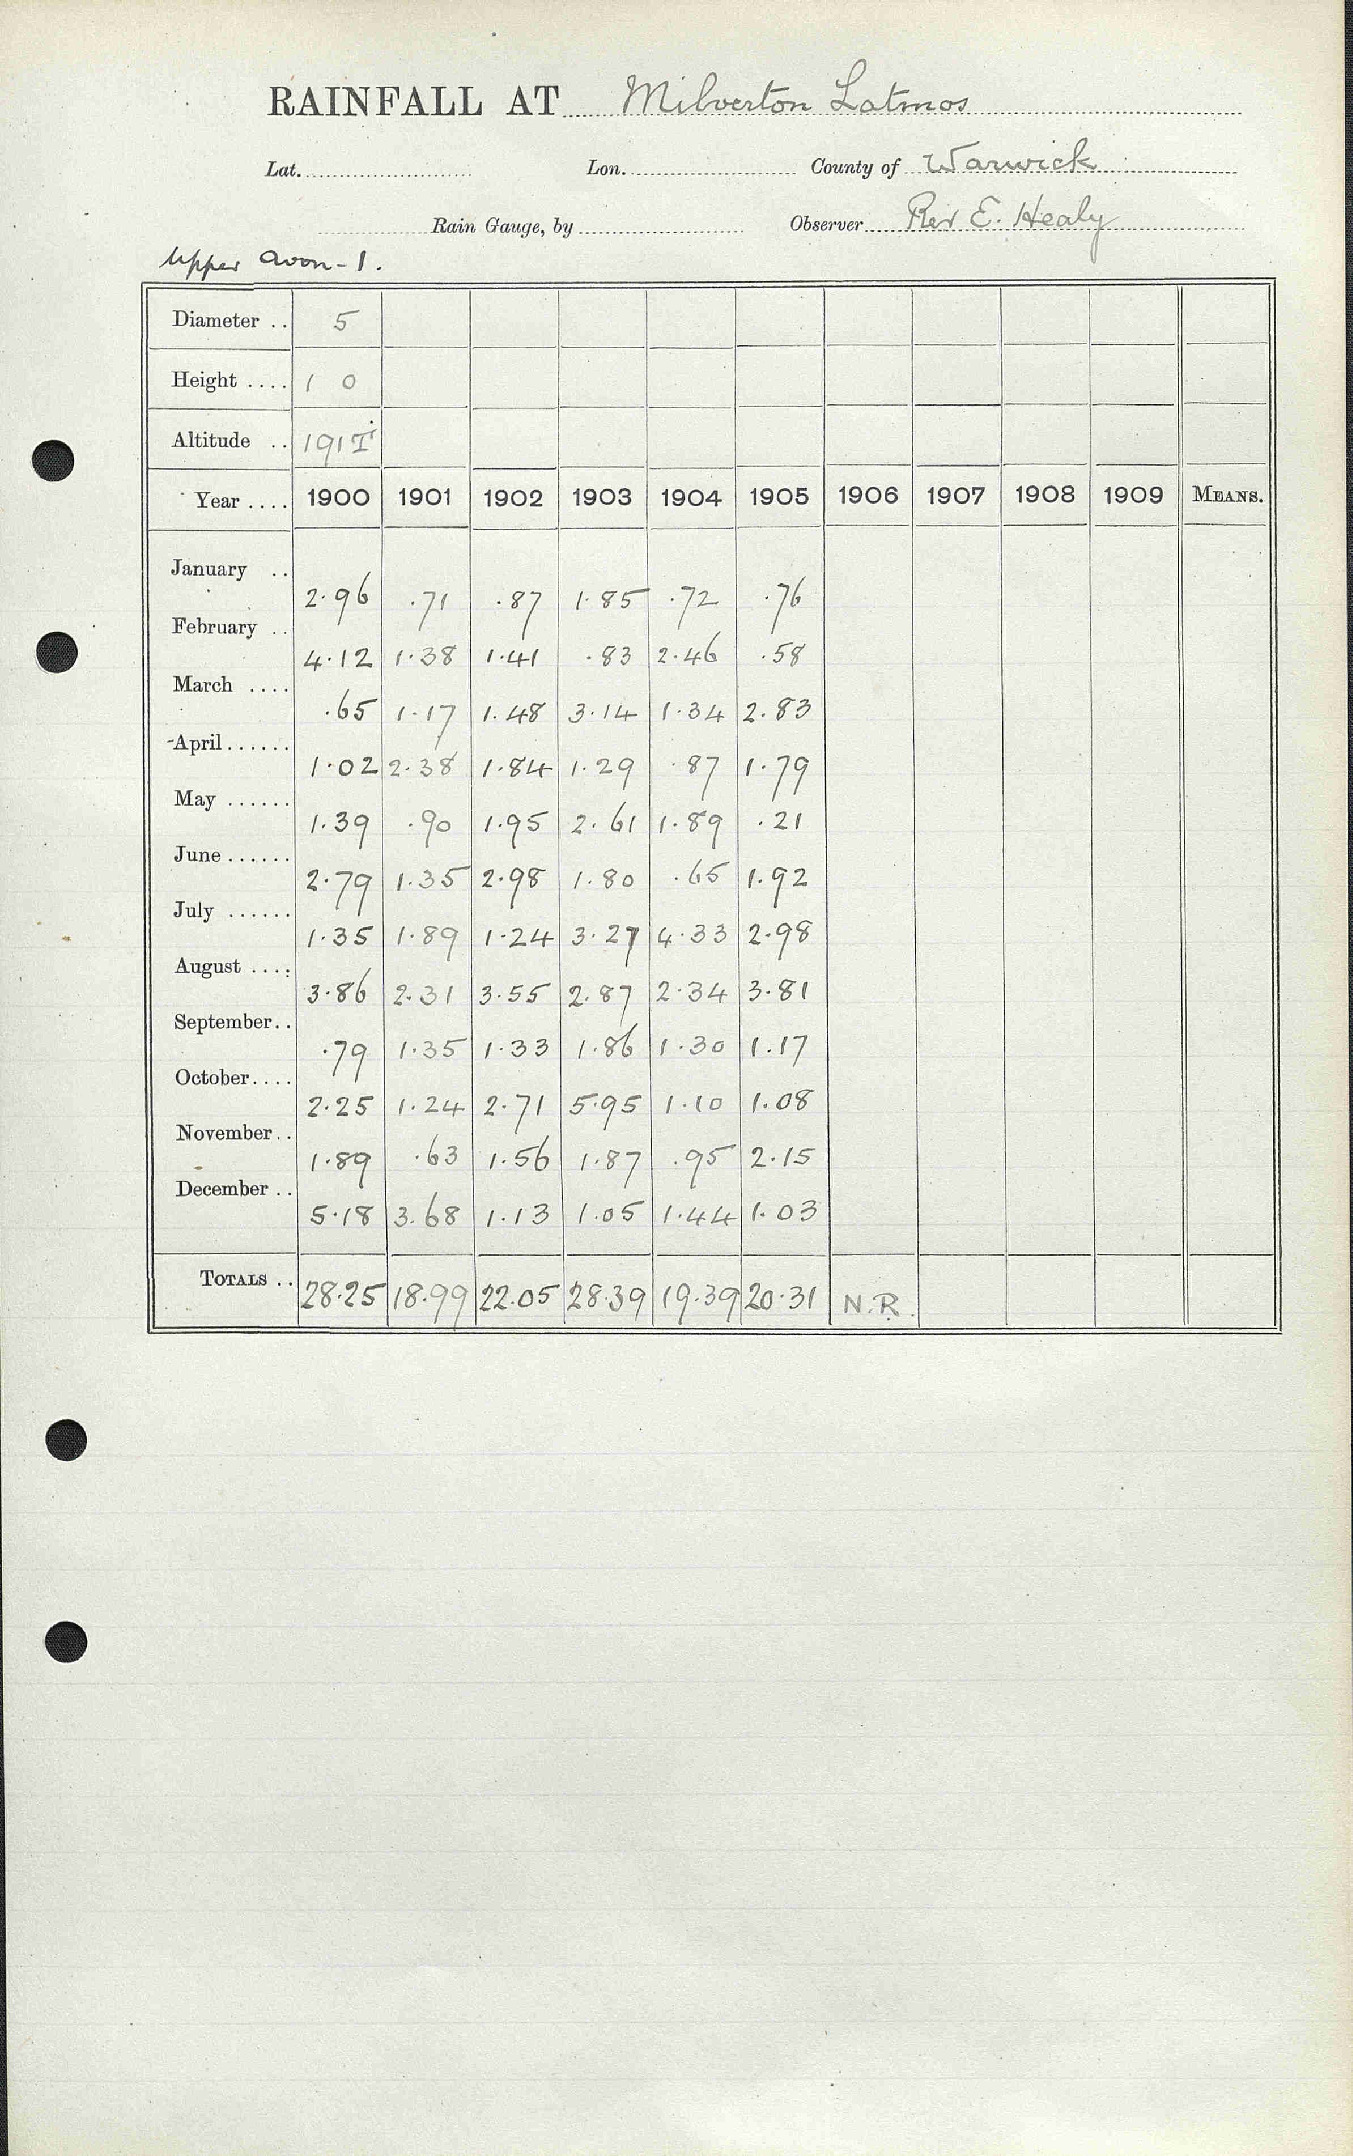 RAINFALL AT Milverton Latmos
Lat. Lon. County of Warwick
Rain Gauge, by Observer Rev E. Healy
Upper Avon - 1.
Diameter .. 5
Height .... 1 0
Altitude .. 191 T
Year .... 1900 1901 1902 1903 1904 1905 1906 1907 1908 1909 MEANS.
January ..
2.96 .71 .87 1.85 .72 .76
February ..
4.12 1.38 1.41 .83 2.46 .58
March ....
.65 1.17 1.48 3.14 1.34 2.83
April ......
1.02 2.38 1.84 1.29 .87 1.79
May ......
1.39 .90 1.95 2.61 1.89 .21
June ......
2.79 1.35 2.98 1.80 .65 1.92
July ......
1.35 1.89 1.24 3.27 4.33 2.98
August ....
3.86 2.31 3.55 2.87 2.34 3.81
September..
.79 1.35 1.33 1.86 1.30 1.17
October....
2.25 1.24 2.71 5.95 1.10 1.08
November..
1.89 .63 1.56 1.87 .95 2.15
December ..
5.18 3.68 1.13 1.05 1.44 1.03
TOTALS .. 28.25 18.99 22.05 28.39 19.39 20.31 N.R.